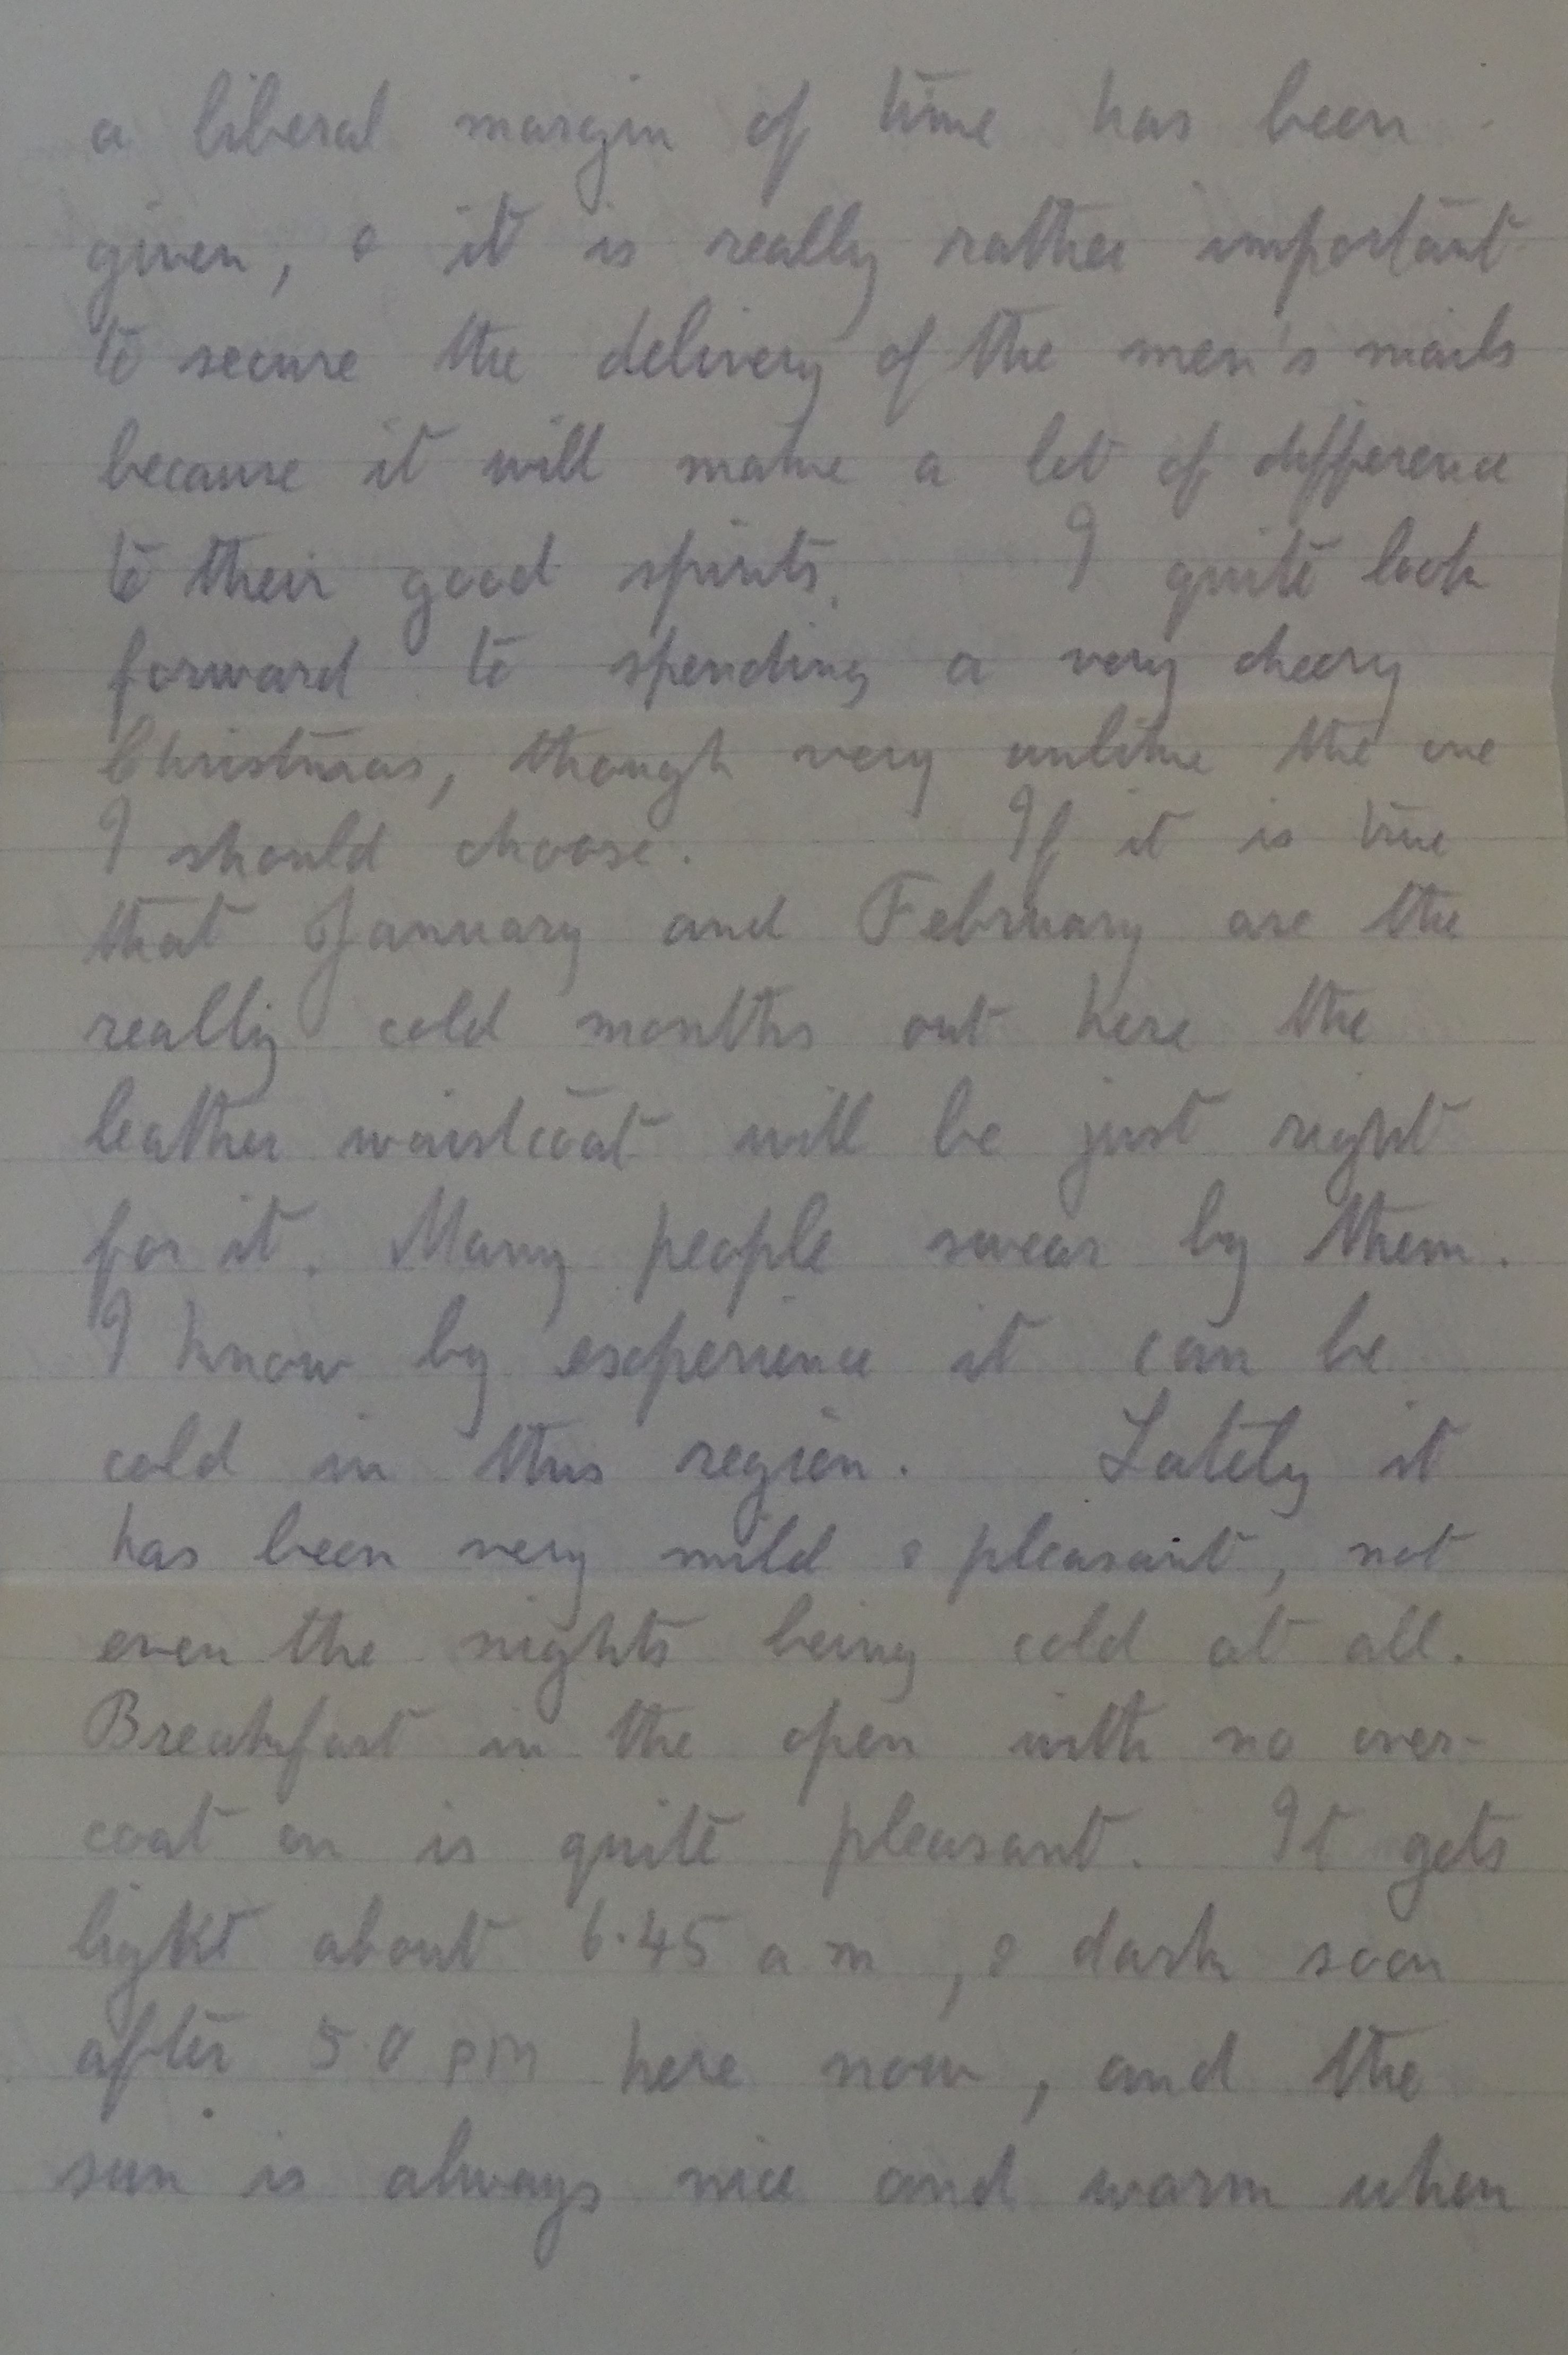 a liberal margin of time has been
given, & it is really rather important
to secure the delivery of the men's mails
because it will make a lot of difference
to their good spirits. I quite look
forward to spending a very cheery
Christmas, though very unlike the one
I should choose. If it is true
that January and February are the
really cold months out here the
leather waistcoat will be just right
for it. Many people swear by them.
I know by experience it can be
cold in this region. Lately it
has been very mild & pleasant, not
even the nights being cold at all.
Breakfast in the open with no over-
coat on is quite pleasant. It gets
light about 6.45 a m, & dark soon
after 5.0 pm here now, and the
sun is always nice and warm when